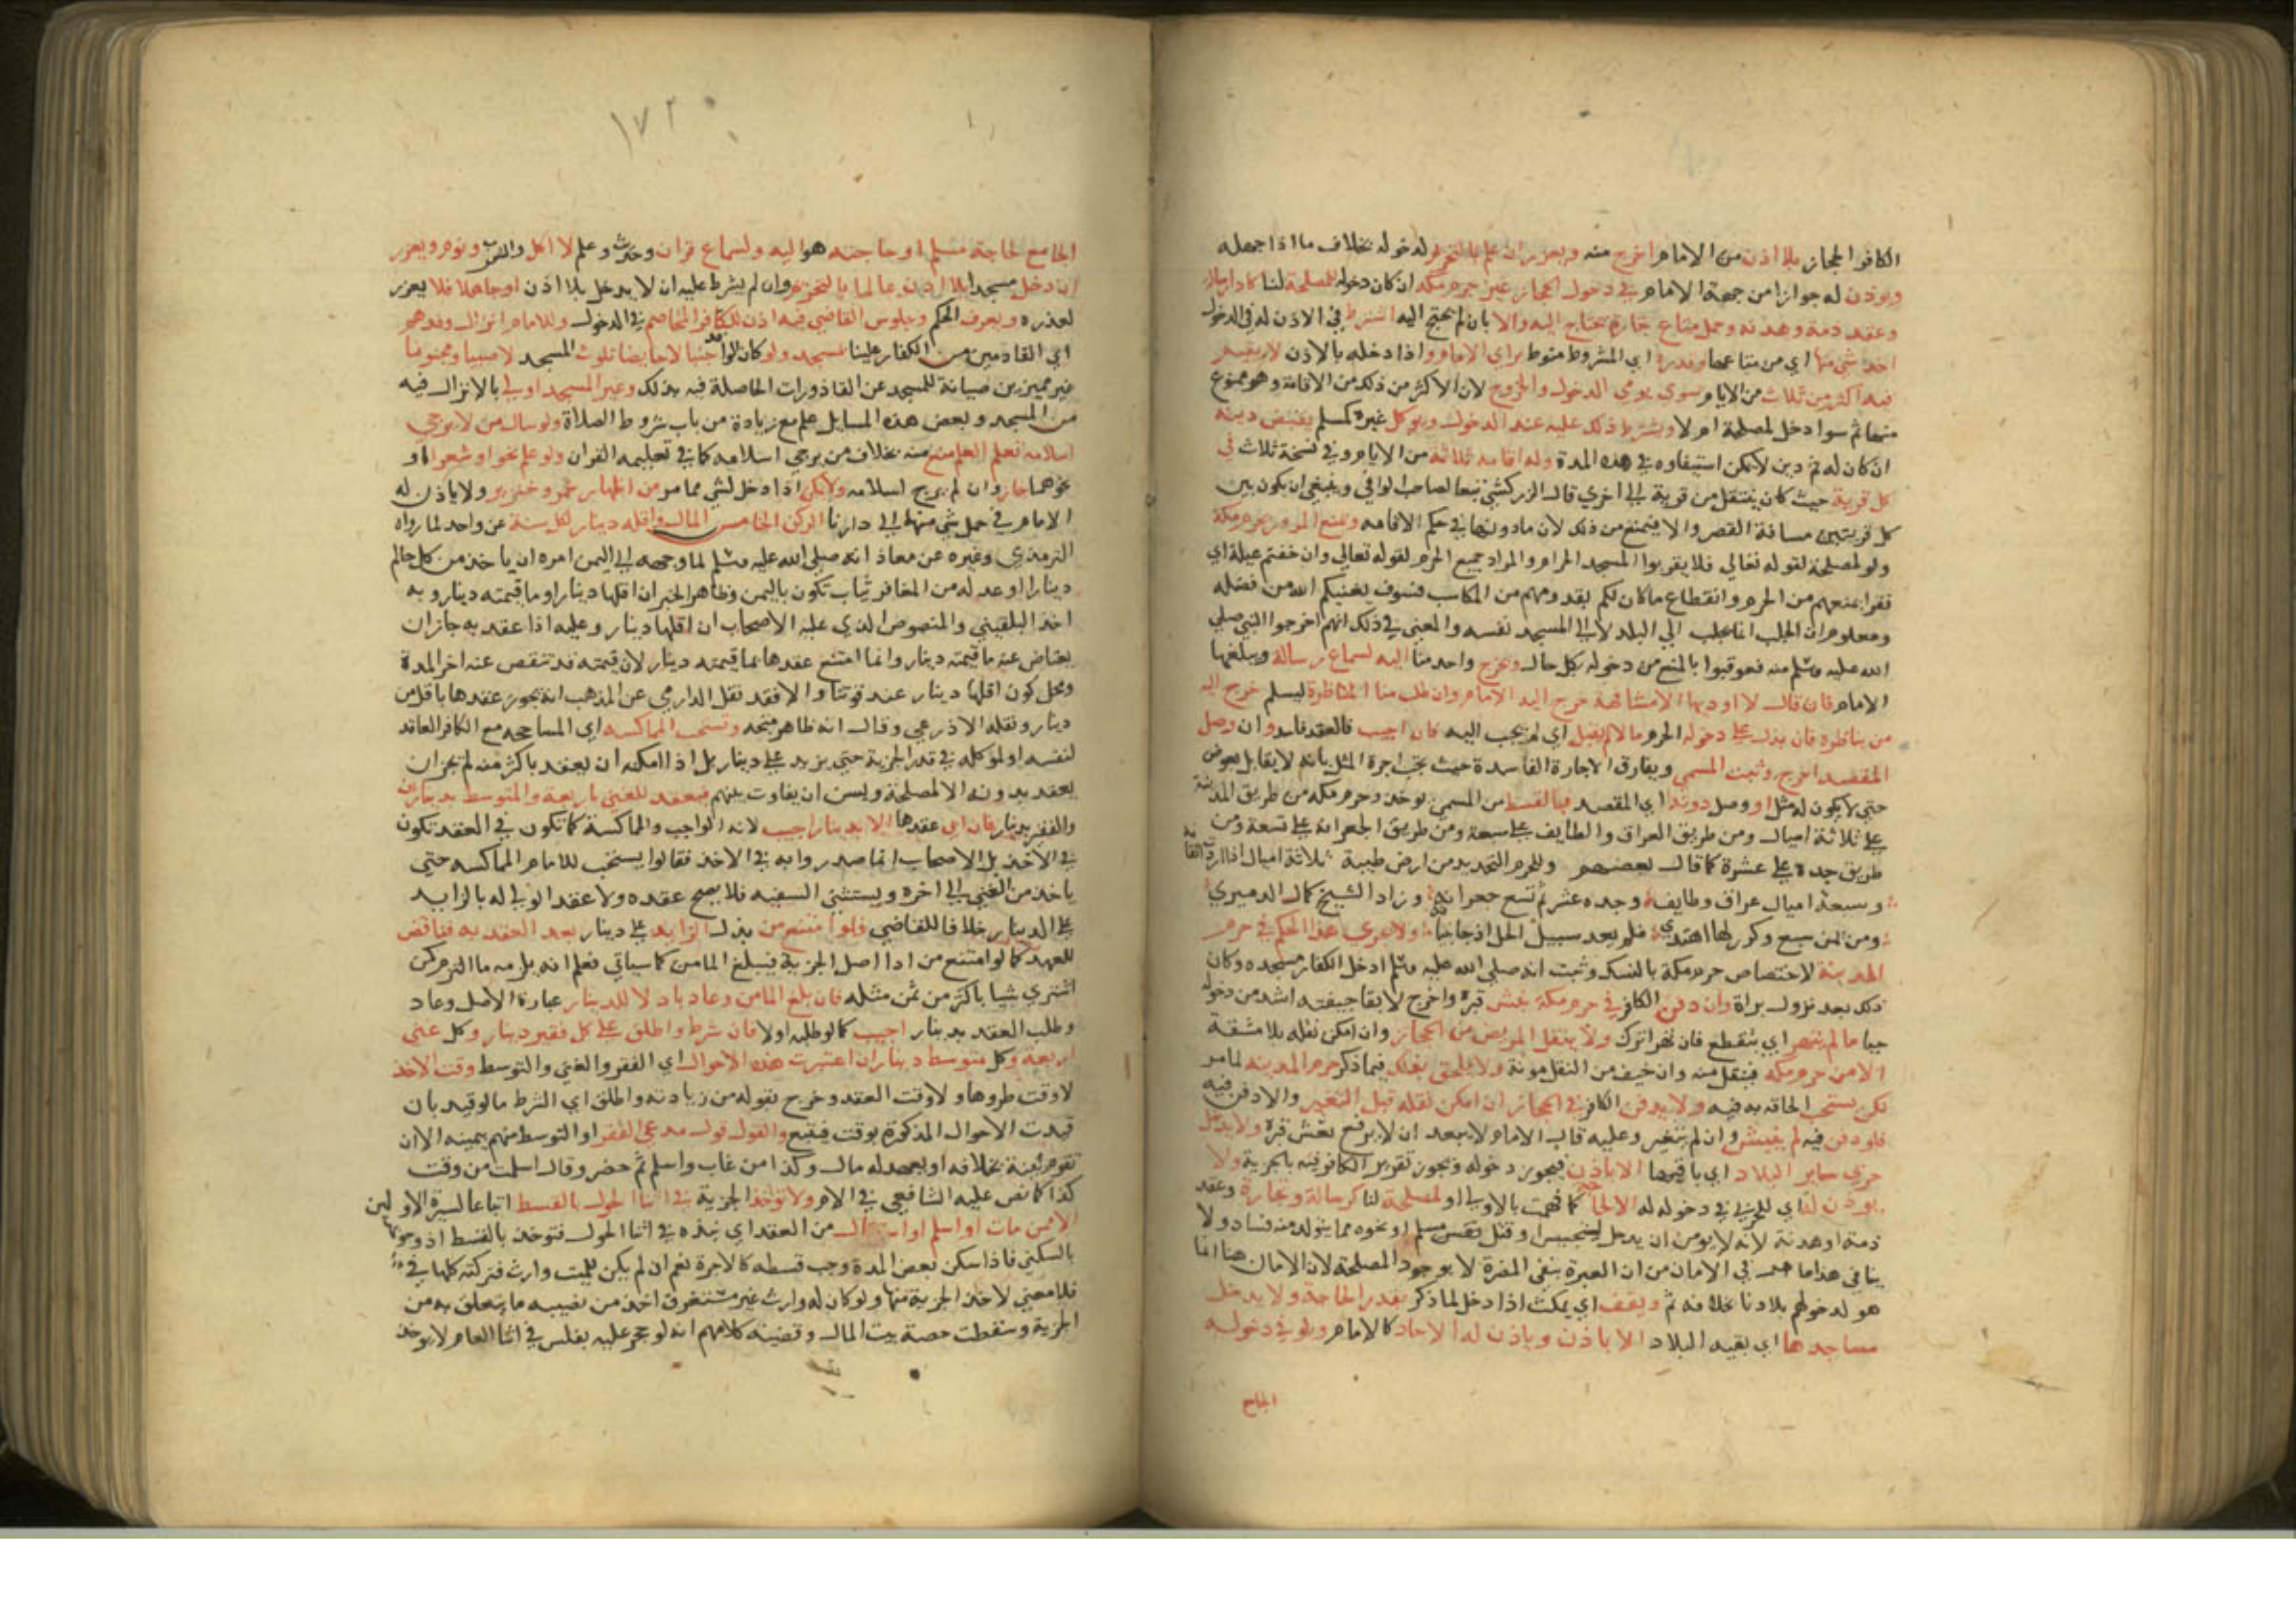 الكافر الحجاز بلا اذن من الامام اخرج منه ويعزر ان علم بالتحريم لدخوله بخلاف ما اذا جهله
ويوذن له جوازا من جهة الامام في دخول الحجاز غير حرم مكة ان كان دخوله لمصلحة لنا كاداء رسالة
وعقد ذمة وهدنة وحمل متاع تجارة يحتاج اليه والا بان لم يحتج اليه اشترط في الاذن له في الدخول
اخذ شي منها اي من متاعها وقدره اي المشروط منوط براي الامام واذا دخله بالاذن لا يقيم
فيه اكثر من ثلاث من الايام سوي يومي الدخول والخروج لان الاكثر من ذلك من الاقامة وهو ممنوع
منها ثم سوا دخل لمصلحة ام لا ويشترط ذلك عليه عند الدخول ويوكل غيره كمسلم يقبض دينه
ان كان له ثم دين لا يمكن استيفاوه في هذه المدة وله اقامة ثلاثة من الايام وفي نسخة ثلاث في
كل قرية حيث كان ينتقل من قرية الي اخري قال الزركشي تبعا لصاحب الوافي وينبغي ان يكون بين
كل قريتين مسافة القصر والا فيمنع من ذلك لان ما دونها في حكم الاقامة ويمنع المرور بحرم مكة
ولو لمصلحة لقوله تعالي فلا يقربوا المسجد الحرام والمراد جميع الحرم لقوله تعالي وان خفتم عيلة اي
فقرا بمنعهم من الحرم وانقطاع ما كان لكم بقدومهم من المكاسب فسوف يغنيكم الله من فضله
ومعلوم ان الجلب انما يجلب الي البلد لا الي المسجد نفسه والمعني في ذلك انهم اخرجوا النبي صلي
الله عليه وسلم منه فعوقبوا بالمنع من دخوله بكل حال ويخرج واحد منا اليه لسماع رسالة ويبلغها
الامام فان قال لا اوديها الا مشافهة خرج اليه الامام وان طلب منا المناظرة ليسلم خرج اليه
من يناظره فان بذل علي دخوله الحرم مالا لم يقبل اي لم يجب اليه فان اجيب فالعقد فاسد وان وصل
المقصد اخرج وثبت المسمي ويفارق الاجارة الفاسدة حيث يجب اجرة المثل بانه لا يقابل بعوض
حتي لا يكون له مثل او وصل دونه اي المقصد فبالقسط من المسمي يوخذ وحرم مكة من طريق المدينة
علي ثلاثة اميال ومن طريق العراق والطايف علي سبعة ومن طريق الجعرانة علي تسعة ومن
طريق جدة علي عشرة كما قال بعضهم وللحرم التحديد من ارض طيبة ثلاثة اميال اذا رمت اتقانه
وسبعة اميال عراق وطايف وجده عشر ثم تسع جعرانه وزاد الشيخ كمال الدميري
ومن يمن سبع وكرز لها اهتدي فلم يعد سبيل الحل اذ جا تبيانه ولا يجري هذا الحكم في حرم
المدينة لاختصاص حرم مكة بالنسك وثبت انه صلي الله عليه وسلم ادخل الكفار مسجده وكان
ذلك بعد نزول براة وان دفن الكافر في حرم مكة نبش قبره واخرج لان بقا جيفته اشد من دخوله
حيا ما لم يتهر اي يتقطع فان تهرا ترك ولا ينقل المريض من الحجاز وان امكن نقله بلا مشقة
الا من حرم مكة فينقل منه وان خيف من النقل موته ولا يلحق بذلك فيما ذكر حرم المدينة لما مر
لكن يستحب الحاقه به فيه ولا يدفن الكافر في الحجاز ان امكن نقله قبل التغير والا دفن فيه
فلو دفن فيه لم ينبش وان لم يتغير وعليه قال الامام لا يبعد ان لا يرفع نعش قبره ولا يدخل
حربي ساير البلاد اي باقيها الا باذن فيجوز دخوله ويجوز تقرير الكافر فيه بالجزية ولا
يوذن له اي للحربي في دخوله له الا لحاجة كما فهمت بالاولي او لمصلحة لنا كرسالة وتجارة وعقد
ذمة او هدنة لانه لا يومن ان يدخل لتجسس او قتل نفس مسلم او نحوه مما يتولد منه فساد ولا
ينافي هذا ما مر في الامان من ان العبرة بنفي المضرة لا بوجود المصلحة لان الامان هنا انما
هو لدخولهم بلادنا بخلافه ثم ويقف اي يمكث اذا دخل لما ذكر بقدر الحاجة ولا يدخل
مساجدها اي بقية البلاد الا باذن وياذن له الاحاد كالامام ولو في دخوله
الجامع
١٧٢
الجامع لحاجة مسلم او حاجته هو اليه ولسماع قران وحديث وعلم لا اكل وشرب ونوم ويعزر
ان دخل مسجدا بلا اذن عالما بالتحريم وان لم يشرط عليه ان لا يدخل بلا اذن او جاهلا فلا يعزر
لعذره ويعرف الحكم وجلوس القاضي فيه اذن للكافر المخاصم في الدخول وللامام انزال وفدهم
اي القادمين من الكفار علينا المسجد ولو كانوا جنبا لا حايضا تلوث المسجد لا صبيا ومجنونا
غير مميزين صيانة للمسجد عن القاذورات الحاصلة فيه بذلك وغير المسجد اولي بالانزال فيه
من المسجد وبعض هذه المسايل علم مع زيادة من باب شروط الصلاة ولو سال من لا يرجي
اسلامه تعلم العلم منع منه بخلاف من يرجي اسلامه كما في تعليمه القران ولو علم نحوا وشعرا او
نحوهما جاز وان لم يرج اسلامه ولا يمكن اذا دخل لشي مما مر من اظهار خمر وخنزير ولا ياذن له
الامام في حمل شي منها الي دارنا الركن الخامس المال واقله دينار لكل سنة عن واحد لما رواه
الترمذي وغيره عن معاذ انه صلي الله عليه وسلم لما وجهه الي اليمن امره ان ياخذ من كل حالم
دينارا او عدله من المعافر ثياب تكون باليمن وظاهر الخبر ان اقلها دينار او ما قيمته دينار وبه
اخذ البلقيني والمنصوص الذي عليه الاصحاب ان اقلها دينار وعليه اذا عقد به جاز ان
يعتاض عنه ما قيمته دينار وانما امتنع عقدها بما قيمته دينار لان قيمته قد تنقص عنه اخر المدة
ومحل كون اقلها دينار عند قوتنا والا فقد نقل الدارمي عن المذهب انه يجوز عقدها باقل من
دينار ونقله الاذرعي وقال انه ظاهر متجه وتستحب المماكسة اي المشاححة مع الكافر العاقد
لنفسه او لموكله في قدر الجزية حتي يزيد علي دينار بل اذا امكنه ان يعقد باكثر منه لم يجز ان
يعقد بدونه الا لمصلحة ويسن ان يفاوت بينهم فيعقد للغني باربعة والمتوسط بدينارين
والفقير بدينار فان ابي عقدها الا بدينار اجيب لانه الواجب والمماكسة كما تكون في العقد تكون
في الاخذ بل الاصحاب انما صدروا به في الاخذ فقالوا يستحب للامام المماكسة حتي
ياخذ من الغني الي اخره ويستثني السفيه فلا يصح عقده ولا عقد الولي له بالزايد
علي الدينار خلافا للقاضي فلو امتنع من بذل الزايد علي دينار بعد العقد به فناقض
للعهد كما لو امتنع من ادا اصل الجزية فيبلغ المامن كما سياتي فعلم انه يلزمه ما التزم كمن
اشتري شيا باكثر من ثمن مثله فان بلغ المامن وعاد باذلا للدينار عبارة الاصل وعاد
وطلب العقد بدينار اجيب كما لو طلبه اولا فان شرط واطلق علي كل فقير دينار وكل غني
اربعة وكل متوسط ديناران اعتبرت هذه الاحوال اي الفقر والغني والتوسط وقت الاخذ
لا وقت طروها ولا وقت العقد وخرج بقوله من زيادته واطلق اي الشرط ما لو قيد بان
قيدت الاحوال المذكورة بوقت فيتبع والقول قول مدعي الفقر او التوسط منهم بيمينه الا ان
تقوم بينة بخلافه او يعهد له مال وكذا من غاب واسلم ثم حضر وقال اسلمت من وقت
كذا كما نص عليه الشافعي في الام ولا توخذ الجزية في اثنا الحول بالقسط اتباعا لسيرة الاولين
الا ممن مات او اسلم او من العقد اي نبذه في اثنا الحول فتوخذ بالقسط اذ وجوبها
بالسكني فاذا سكن بعض المدة وجب قسطه كالاجرة نعم ان لم يكن للميت وارث فتركته كلها في
فلا معني لاخذ الجزية منها ولو كان له وارث غير مستغرق اخذ من نصيبه ما يتعلق به من
الجزية وسقطت حصة بيت المال وقضية كلامهم انه لو حجر عليه بفلس في اثنا العام لا يوخذ